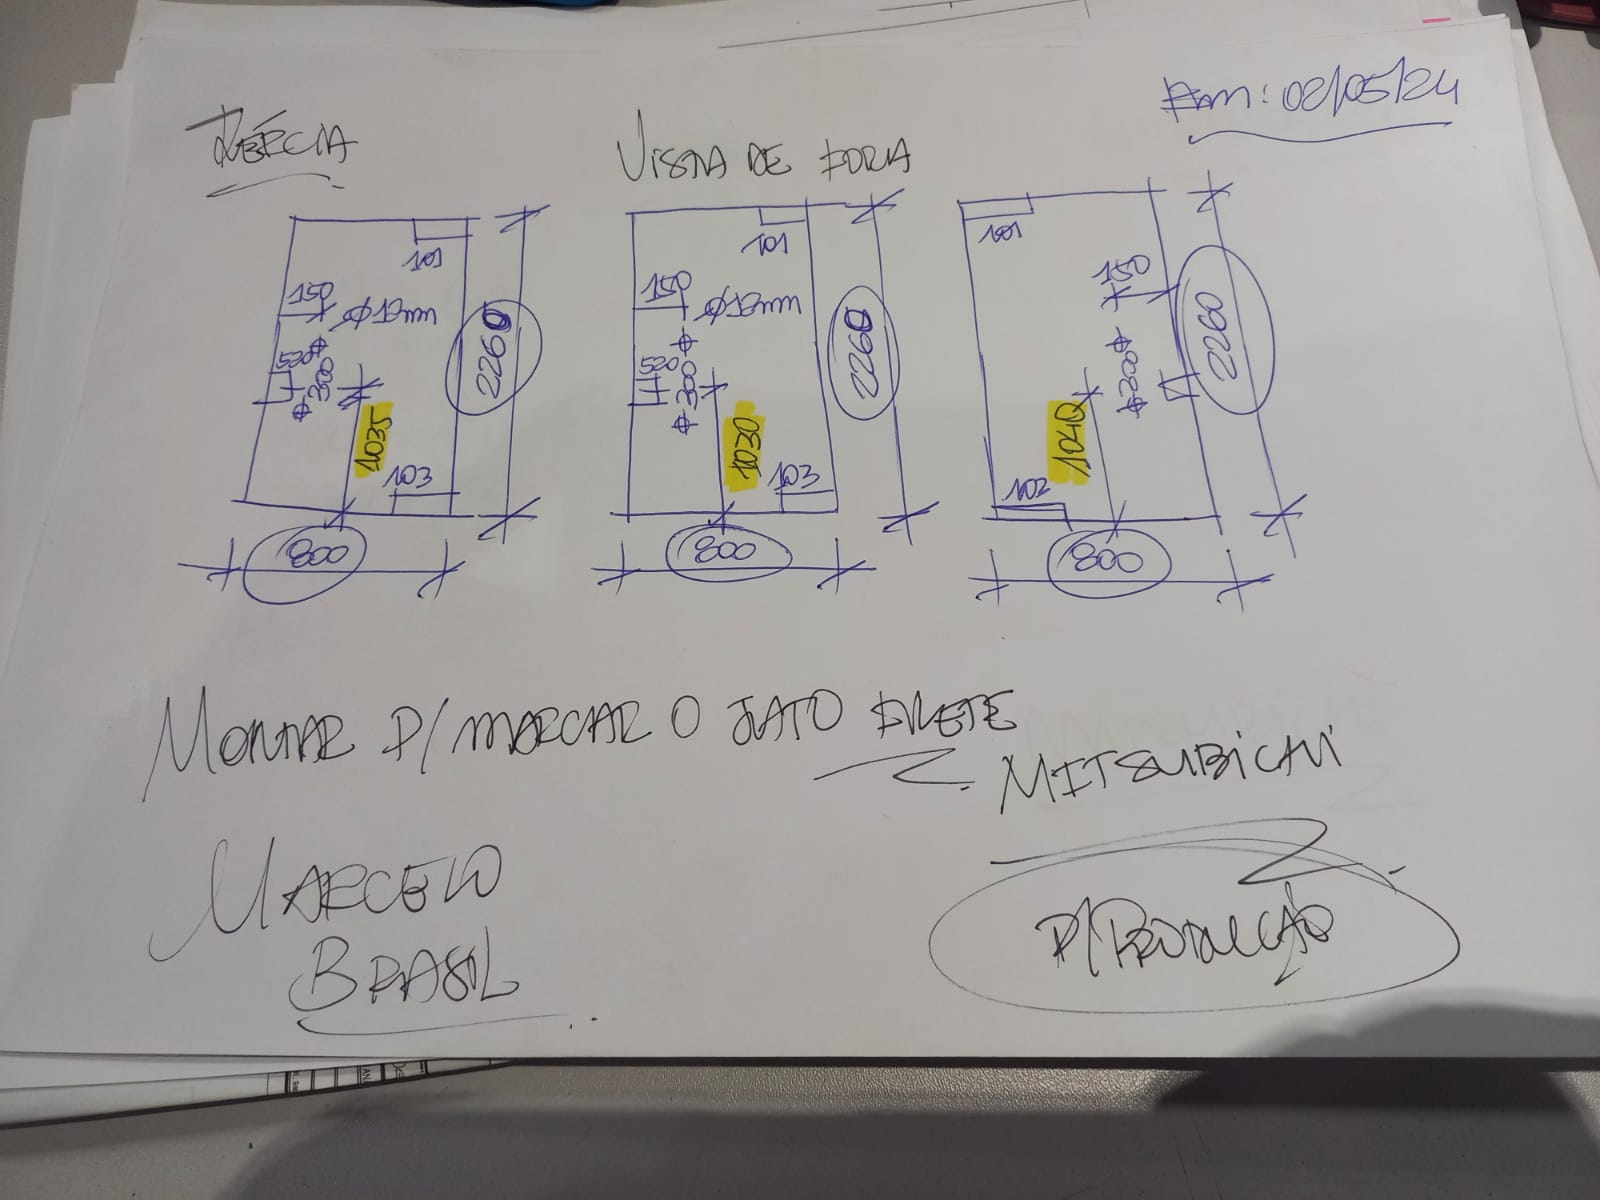 VISTA DE FORA
02/05/24
101
150
Ø12mm
520
300
2260
1035
103
800
101
150
Ø12mm
520
300
2260
1030
103
800
101
150
300
2260
1040
102
800
MONTAR P/ MARCAR O JATO
MITSUBICAVI
MARCELO
BRASIL
P/ PRODUCÇÃO